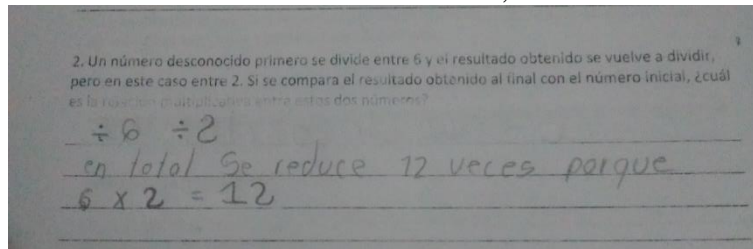 2. Un número desconocido primero se divide entre 6 y el resultado obtenido se vuelve a dividir,
pero en este caso entre 2. Si se compara el resultado obtenido al final con el número inicial, ¿cuál
es la relación multiplicativa entre estos dos números?
÷6 ÷2
en total Se reduce 12 veces porque
6 x 2 = 12